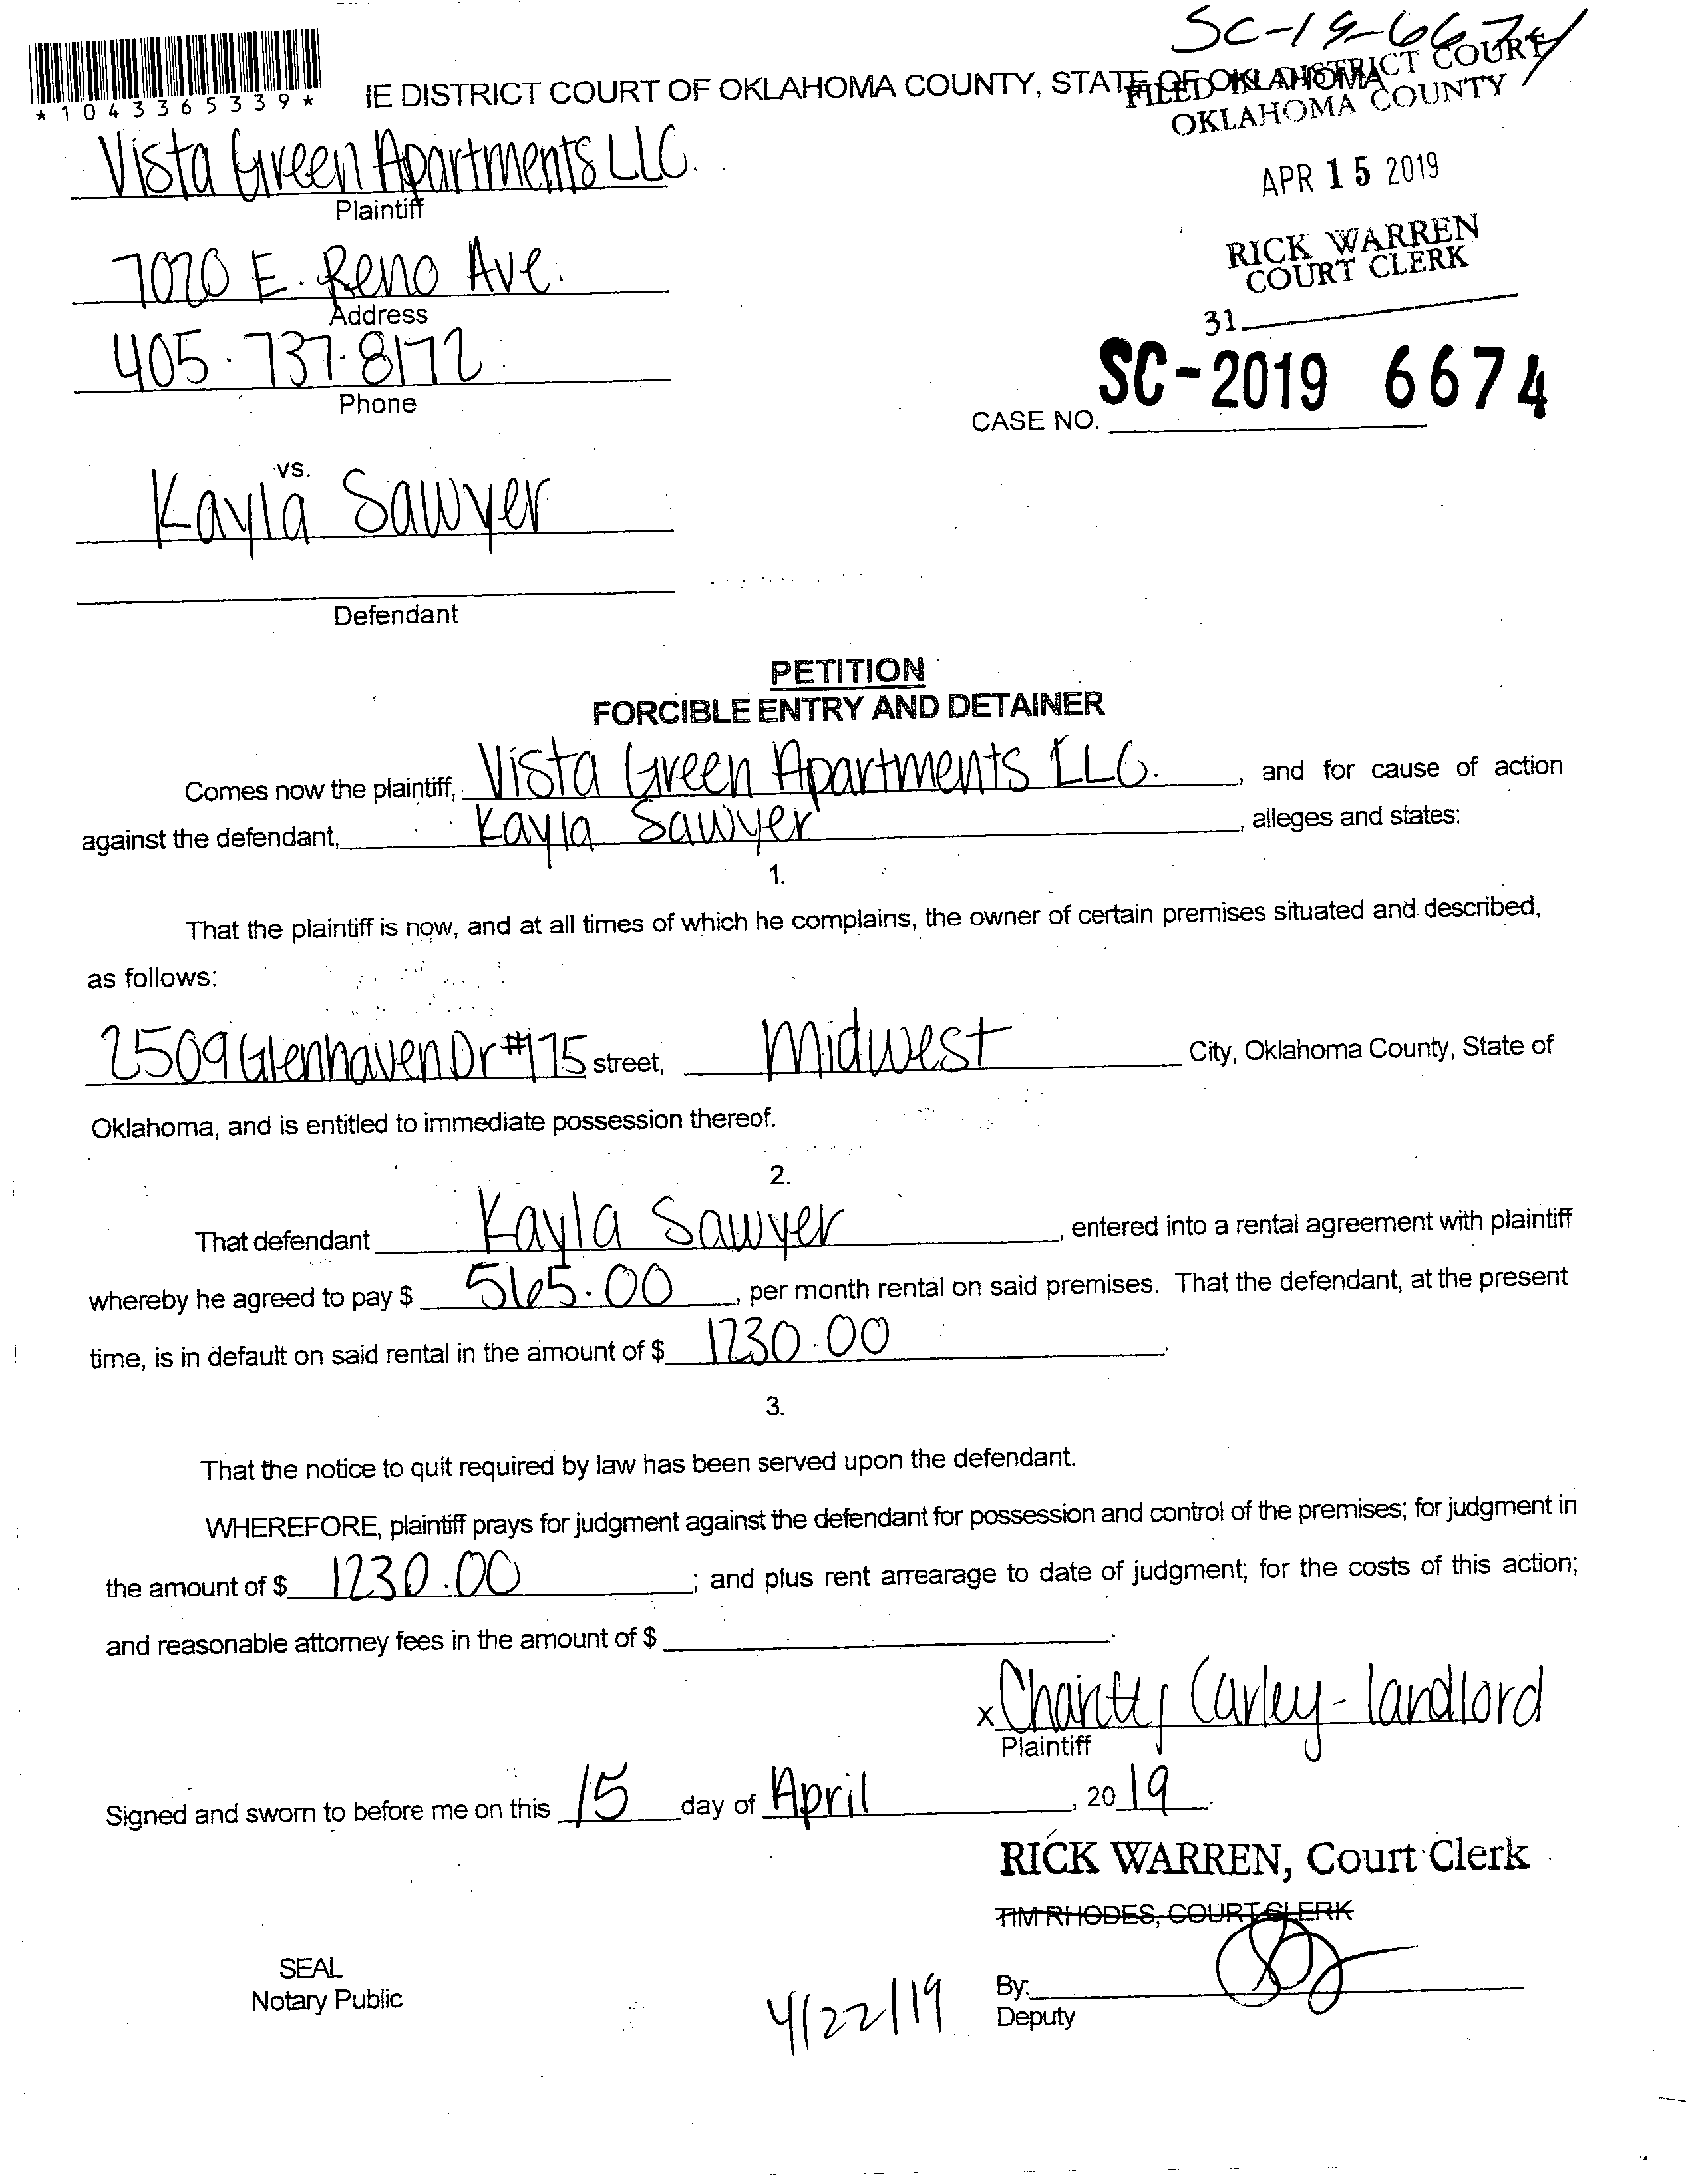 SC-19-6674
*1043365339*
IE DISTRICT COURT OF OKLAHOMA COUNTY, STATE OF OKLAHOMA
FILED IN DISTRICT COURT
OKLAHOMA COUNTY
Vista Green Apartments LLC.
Plaintiff
APR 15 2019
RICK WARREN
COURT CLERK
7020 E. Reno Ave.
Address
31
405-737-8172
Phone
SC-2019 6674
CASE NO.
vs.
Kayla Sawyer
Defendant
PETITION
FORCIBLE ENTRY AND DETAINER
Comes now the plaintiff, Vista Green Apartments LLC. , and for cause of action
against the defendant, Kayla Sawyer , alleges and states:
1.
That the plaintiff is now, and at all times of which he complains, the owner of certain premises situated and described,
as follows:
2509 Glenhaven Dr #175 street, Midwest City, Oklahoma County, State of
Oklahoma, and is entitled to immediate possession thereof.
2.
That defendant Kayla Sawyer , entered into a rental agreement with plaintiff
whereby he agreed to pay $ 565.00 , per month rental on said premises. That the defendant, at the present
time, is in default on said rental in the amount of $ 1230.00 .
3.
That the notice to quit required by law has been served upon the defendant.
WHEREFORE, plaintiff prays for judgment against the defendant for possession and control of the premises; for judgment in
the amount of $ 1230.00 ; and plus rent arrearage to date of judgment; for the costs of this action;
and reasonable attorney fees in the amount of $ .
x Charity Carley - landlord
Plaintiff
Signed and sworn to before me on this 15 day of April , 20 19 .
RICK WARREN, Court Clerk
TIM RHODES, COURT CLERK
SEAL
Notary Public
4/22/19
By:
Deputy